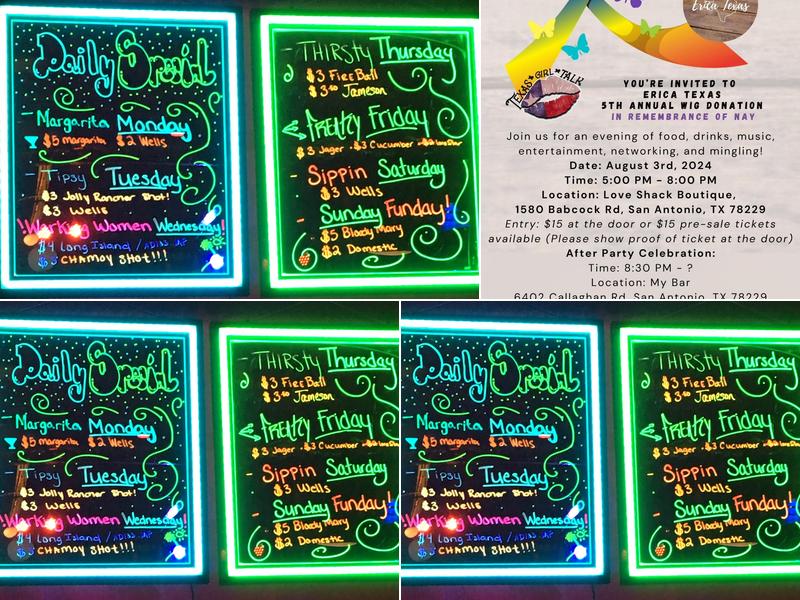 Daily Special
- Margarita Monday
$5 margarita $2 Wells
- Tipsy Tuesday
$3 Jolly Rancher Shot!
$3 Wells
!Working Women Wednesday!
$4 Long Island /
$ CHAMOY SHOT!!!
- THIRSTY Thursday
$3 FireBall
$3.50 Jameson
FREAKY Friday
$3 Jager - $3 Cucumber
- Sippin Saturday
$3 Wells
- Sunday Funday!
$5 Bloody Mary
$2 Domestic
Erica Texas
TEXAS GIRL TALK
YOU'RE INVITED TO
ERICA TEXAS
5TH ANNUAL WIG DONATION
IN REMEMBRANCE OF NAY
Join us for an evening of food, drinks, music,
entertainment, networking, and mingling!
Date: August 3rd, 2024
Time: 5:00 PM - 8:00 PM
Location: Love Shack Boutique,
1580 Babcock Rd, San Antonio, TX 78229
Entry: $15 at the door or $15 pre-sale tickets
available (Please show proof of ticket at the door)
After Party Celebration:
Time: 8:30 PM - ?
Location: My Bar
6402 Callaghan Rd, San Antonio, TX 78229
Daily Special
- Margarita Monday
$5 margarita $2 Wells
- Tipsy Tuesday
$3 Jolly Rancher Shot!
$3 Wells
!Working Women Wednesday!
$4 Long Island /
$ CHAMOY SHOT!!!
- THIRSTY Thursday
$3 FireBall
$3.50 Jameson
FREAKY Friday
$3 Jager - $3 Cucumber
- Sippin Saturday
$3 Wells
- Sunday Funday!
$5 Bloody Mary
$2 Domestic
Daily Special
- Margarita Monday
$5 margarita $2 Wells
- Tipsy Tuesday
$3 Jolly Rancher Shot!
$3 Wells
!Working Women Wednesday!
$4 Long Island /
$ CHAMOY SHOT!!!
- THIRSTY Thursday
$3 FireBall
$3.50 Jameson
FREAKY Friday
$3 Jager - $3 Cucumber
- Sippin Saturday
$3 Wells
- Sunday Funday!
$5 Bloody Mary
$2 Domestic